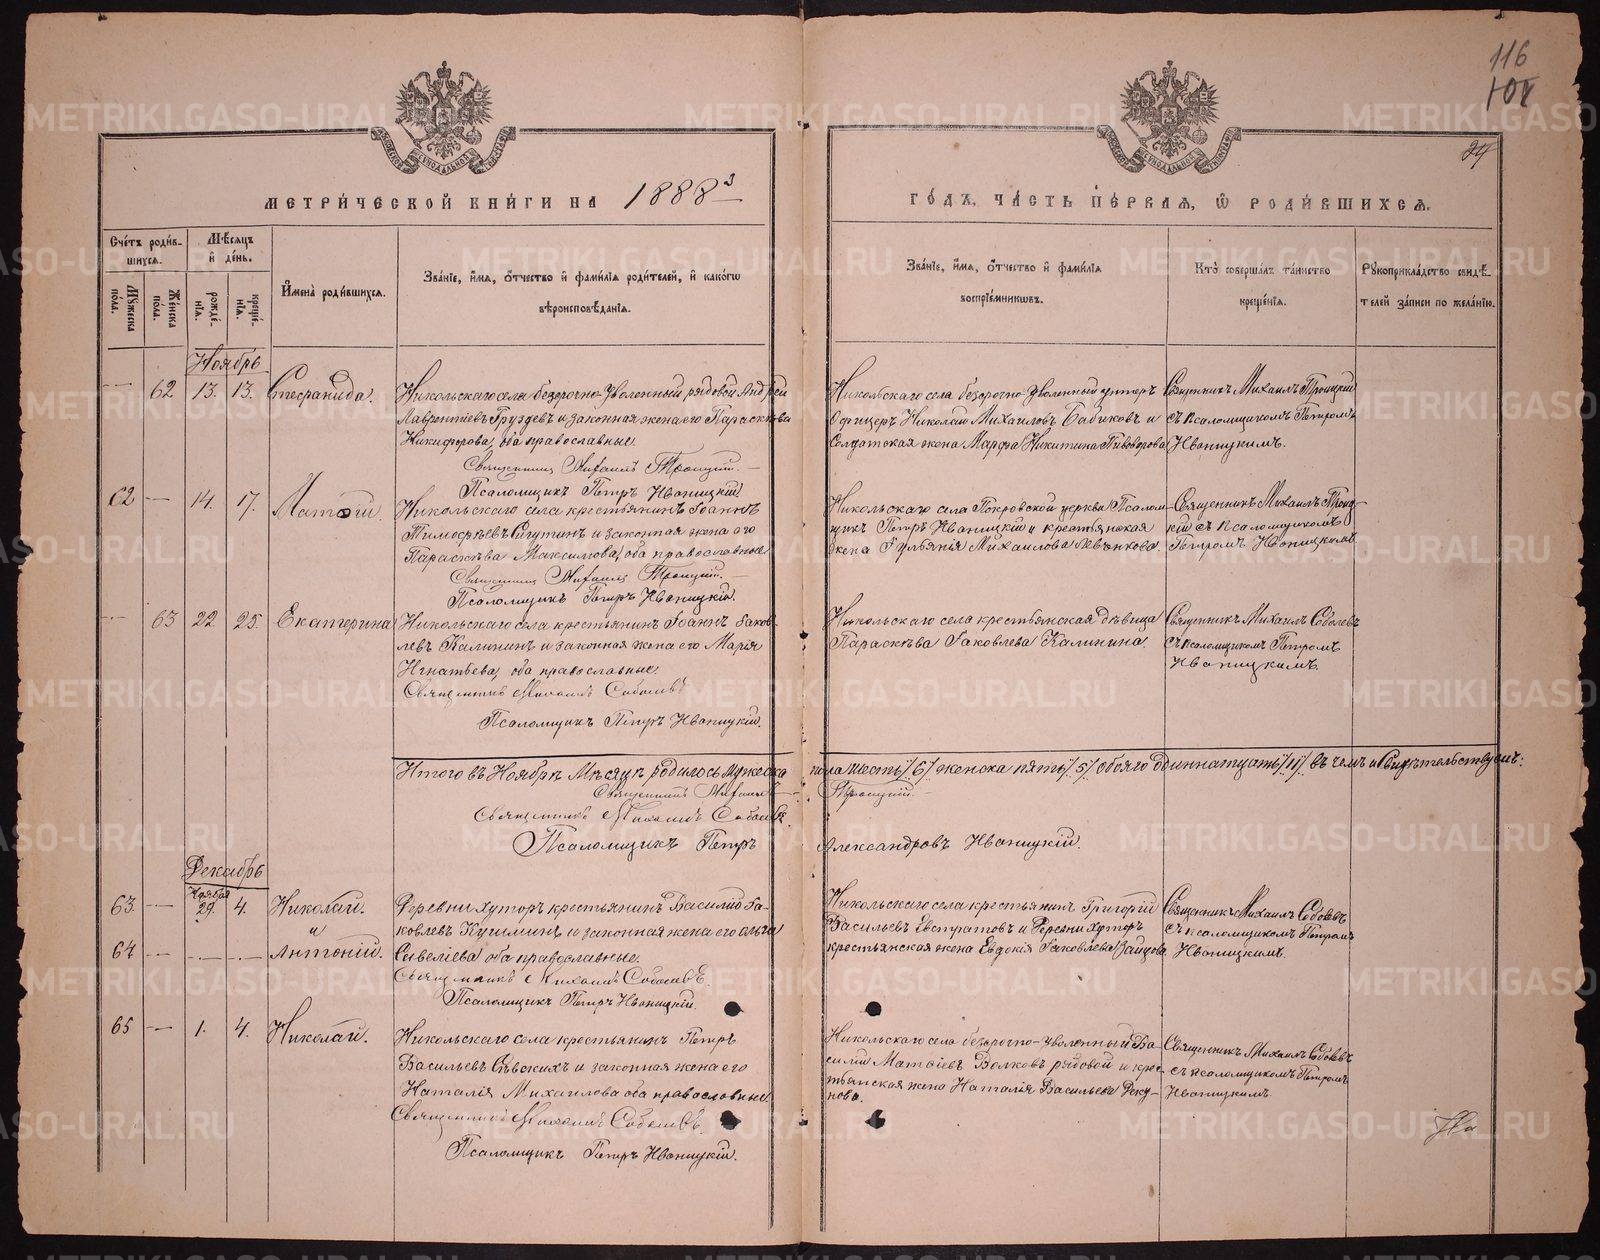 116
24
МЕТРИ́ЧЕСКОЙ КНИ́ГИ НА 1888й
ГО́ДЪ, ЧА́СТЬ ПЕ́РВАЯ, Ѡ РОДИ́ВШИХСЯ.
Сче́тъ роди́в-
шихся.
Мꙋжеска пола.
Же́нска пола.
Мѣ́сяцъ
и҆ де́нь.
рожде́-
нїя.
креще́-
нїя.
И҆мена̀ роди́вшихся.
Зва́нїе, и҆́мя, ѻ҆́тчество и҆ фами́лїя роди́телей, и҆ како́гѡ
вѣроисповѣ́данїя.
Зва́нїе, и҆́мя, ѻ҆́тчество и҆ фами́лїя
воспрїе́мникѡвъ.
Кто̀ соверша́лъ та́инство
креще́нїя.
Рꙋкоприкла́дство свидѣ́-
телей за́писи по жела́нїю.
Ноябрь
— 62 13. 13. Стефанида.
Никольскаго села безсрочно-уволенный рядовой Андрей
Лаврентіевъ Груздевъ и законная жена его Параскѣва
Никифорова, оба православные.
Священникъ Михаилъ Троицкій.
Псаломщикъ Петръ Иваницкій.
Никольскаго села безсрочно уволенный унтеръ
Офицеръ Николай Михаиловъ Бабиковъ и
Солдатская жена Марфа Никитина Пивоварова
Священникъ Михаилъ Троицкій
съ Псаломщикомъ Петромъ
Иваницкимъ.
62 — 14. 17. Матѳій.
Никольскаго села крестьянинъ Іоаннъ
Тимофѣевъ Сигутинъ и законная жена его
Параскѣва Максимова, оба православные
Священникъ Михаилъ Троицкій.
Псаломщикъ Петръ Иваницкій.
Никольскаго села Покровской церкви Псалом-
щикъ Петръ Иваницкій и крестьянская
жена Гульянія Михаилова Левѣнкова.
Священникъ Михаилъ Троиц-
кій съ псаломщикомъ
Петромъ Иваницкимъ
— 63 22 25. Екатерина
Никольскаго села крестьянинъ Іоаннъ Іаков-
левъ Калининъ и законная жена его Марія
Игнатьева, оба православные.
Священникъ Михаилъ Соболевъ
Псаломщикъ Петръ Иваницкій.
Никольскаго села крестьянская дѣвица
Параскѣва Іаковлева Калинина.
Священникъ Михаилъ Соболевъ
съ псаломщикомъ Петромъ
Иваницкимъ.
Итого въ Ноябрѣ Мѣсяцѣ родилось мужеска пола шесть /6/ женска пять /5/ обоего одиннатцать /11/ въ чемъ и Свидѣтельствуемъ:
Священникъ Михаилъ Троицкій.
Священникъ Михаилъ Соболевъ.
Псаломщикъ Петръ Александровъ Иваницкій.
Декабрь
Ноября
63. — 29. 4. Николай.
и
64 — — — Антоній.
Деревни Хуторъ крестьянинъ Василій Іа-
ковлевъ и законная жена его Ольга
Савеліева оба православные.
Священникъ Михаилъ Соболевъ.
Псаломщикъ Петръ Иваницкій.
Никольскаго села крестьянинъ Григорій
Васильевъ Евстратовъ и Деревни Хуторъ
крестьянская жена Евдокія Іаковлева Зайцова
Священникъ Михаилъ Соболевъ
съ псаломщикомъ Петромъ
Иваницкимъ.
65 — 1. 4. Николай.
Никольскаго села крестьянинъ Петръ
Васильевъ Сѣвскихъ и законная жена его
Наталія Михаилова оба православные
Священникъ Михаилъ Соболевъ.
Псаломщикъ Петръ Иваницкій.
Никольскаго села безсрочно-уволенный Ва-
силій Матѳіевъ Волковъ рядовой и крес-
тьянская жена Наталія Васильева Реку-
нова.
Священникъ Михаилъ Соболевъ
съ псаломщикомъ Петромъ
Иваницкимъ
На
METRIKI.GASO-URAL.RU